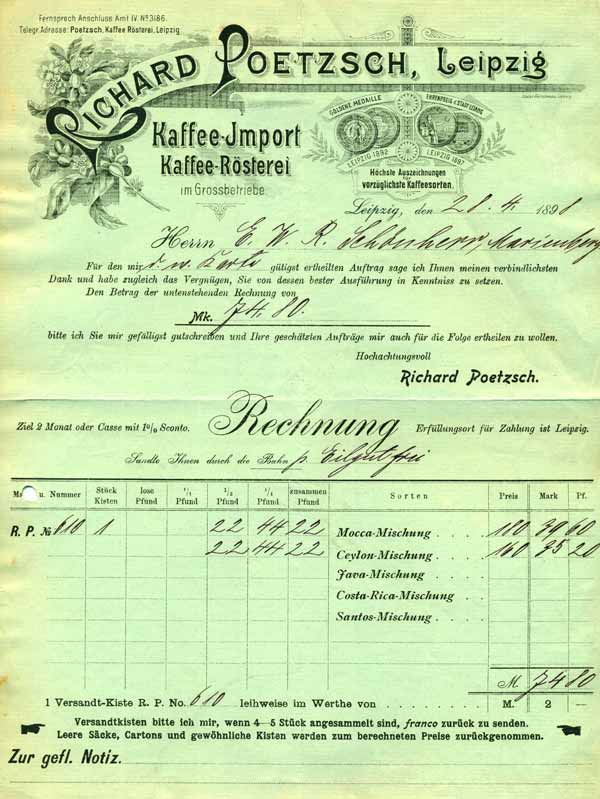 Fernsprech Anschluss Amt IV. No 3186.
Telegr. Adresse: Poetzsch, Kaffee Rösterei, Leipzig.
RICHARD POETZSCH, Leipzig
Kaffee-Import
Kaffee-Rösterei
im Grossbetriebe.
GOLDENE MEDAILLE LEIPZIG 1892
EHRENPREIS d. STADT LEIPZIG LEIPZIG 1897
Höchste Auszeichnungen
für
vorzüglichste Kaffeesorten.
Leipzig, den 28. 4. 1898
Herrn E. W. R. Schönherr, Marienberg
Für den mir d. w. Karte gütigst ertheilten Auftrag sage ich Ihnen meinen verbindlichsten
Dank und habe zugleich das Vergnügen, Sie von dessen bester Ausführung in Kenntniss zu setzen.
Den Betrag der untenstehenden Rechnung von
Mk. 74.80.
bitte ich Sie mir gefälligst gutschreiben und Ihre geschätzten Aufträge mir auch für die Folge ertheilen zu wollen.
Hochachtungsvoll
Richard Poetzsch.
Ziel 2 Monat oder Casse mit 1% Sconto. Rechnung Erfüllungsort für Zahlung ist Leipzig.
Sandte Ihnen durch die Bahn p. Eilgut frei
u. Nummer Stück Kisten lose Pfund 1/1 Pfund 1/2 Pfund 1/4 Pfund zusammen Pfund Sorten Preis Mark Pf.
R. P. No 610 1 22 44 22 Mocca-Mischung . . . . 180 39 60
22 44 22 Ceylon-Mischung . . . . 160 35 20
Java-Mischung . . . .
Costa-Rica-Mischung . . . .
Santos-Mischung . . . .
M. 74 80
1 Versandt-Kiste R. P. No. 610 leihweise im Werthe von . . . . . . . . M. 2 —
Versandtkisten bitte ich mir, wenn 4—5 Stück angesammelt sind, franco zurück zu senden.
Leere Säcke, Cartons und gewöhnliche Kisten werden zum berechneten Preise zurückgenommen.
Zur gefl. Notiz.